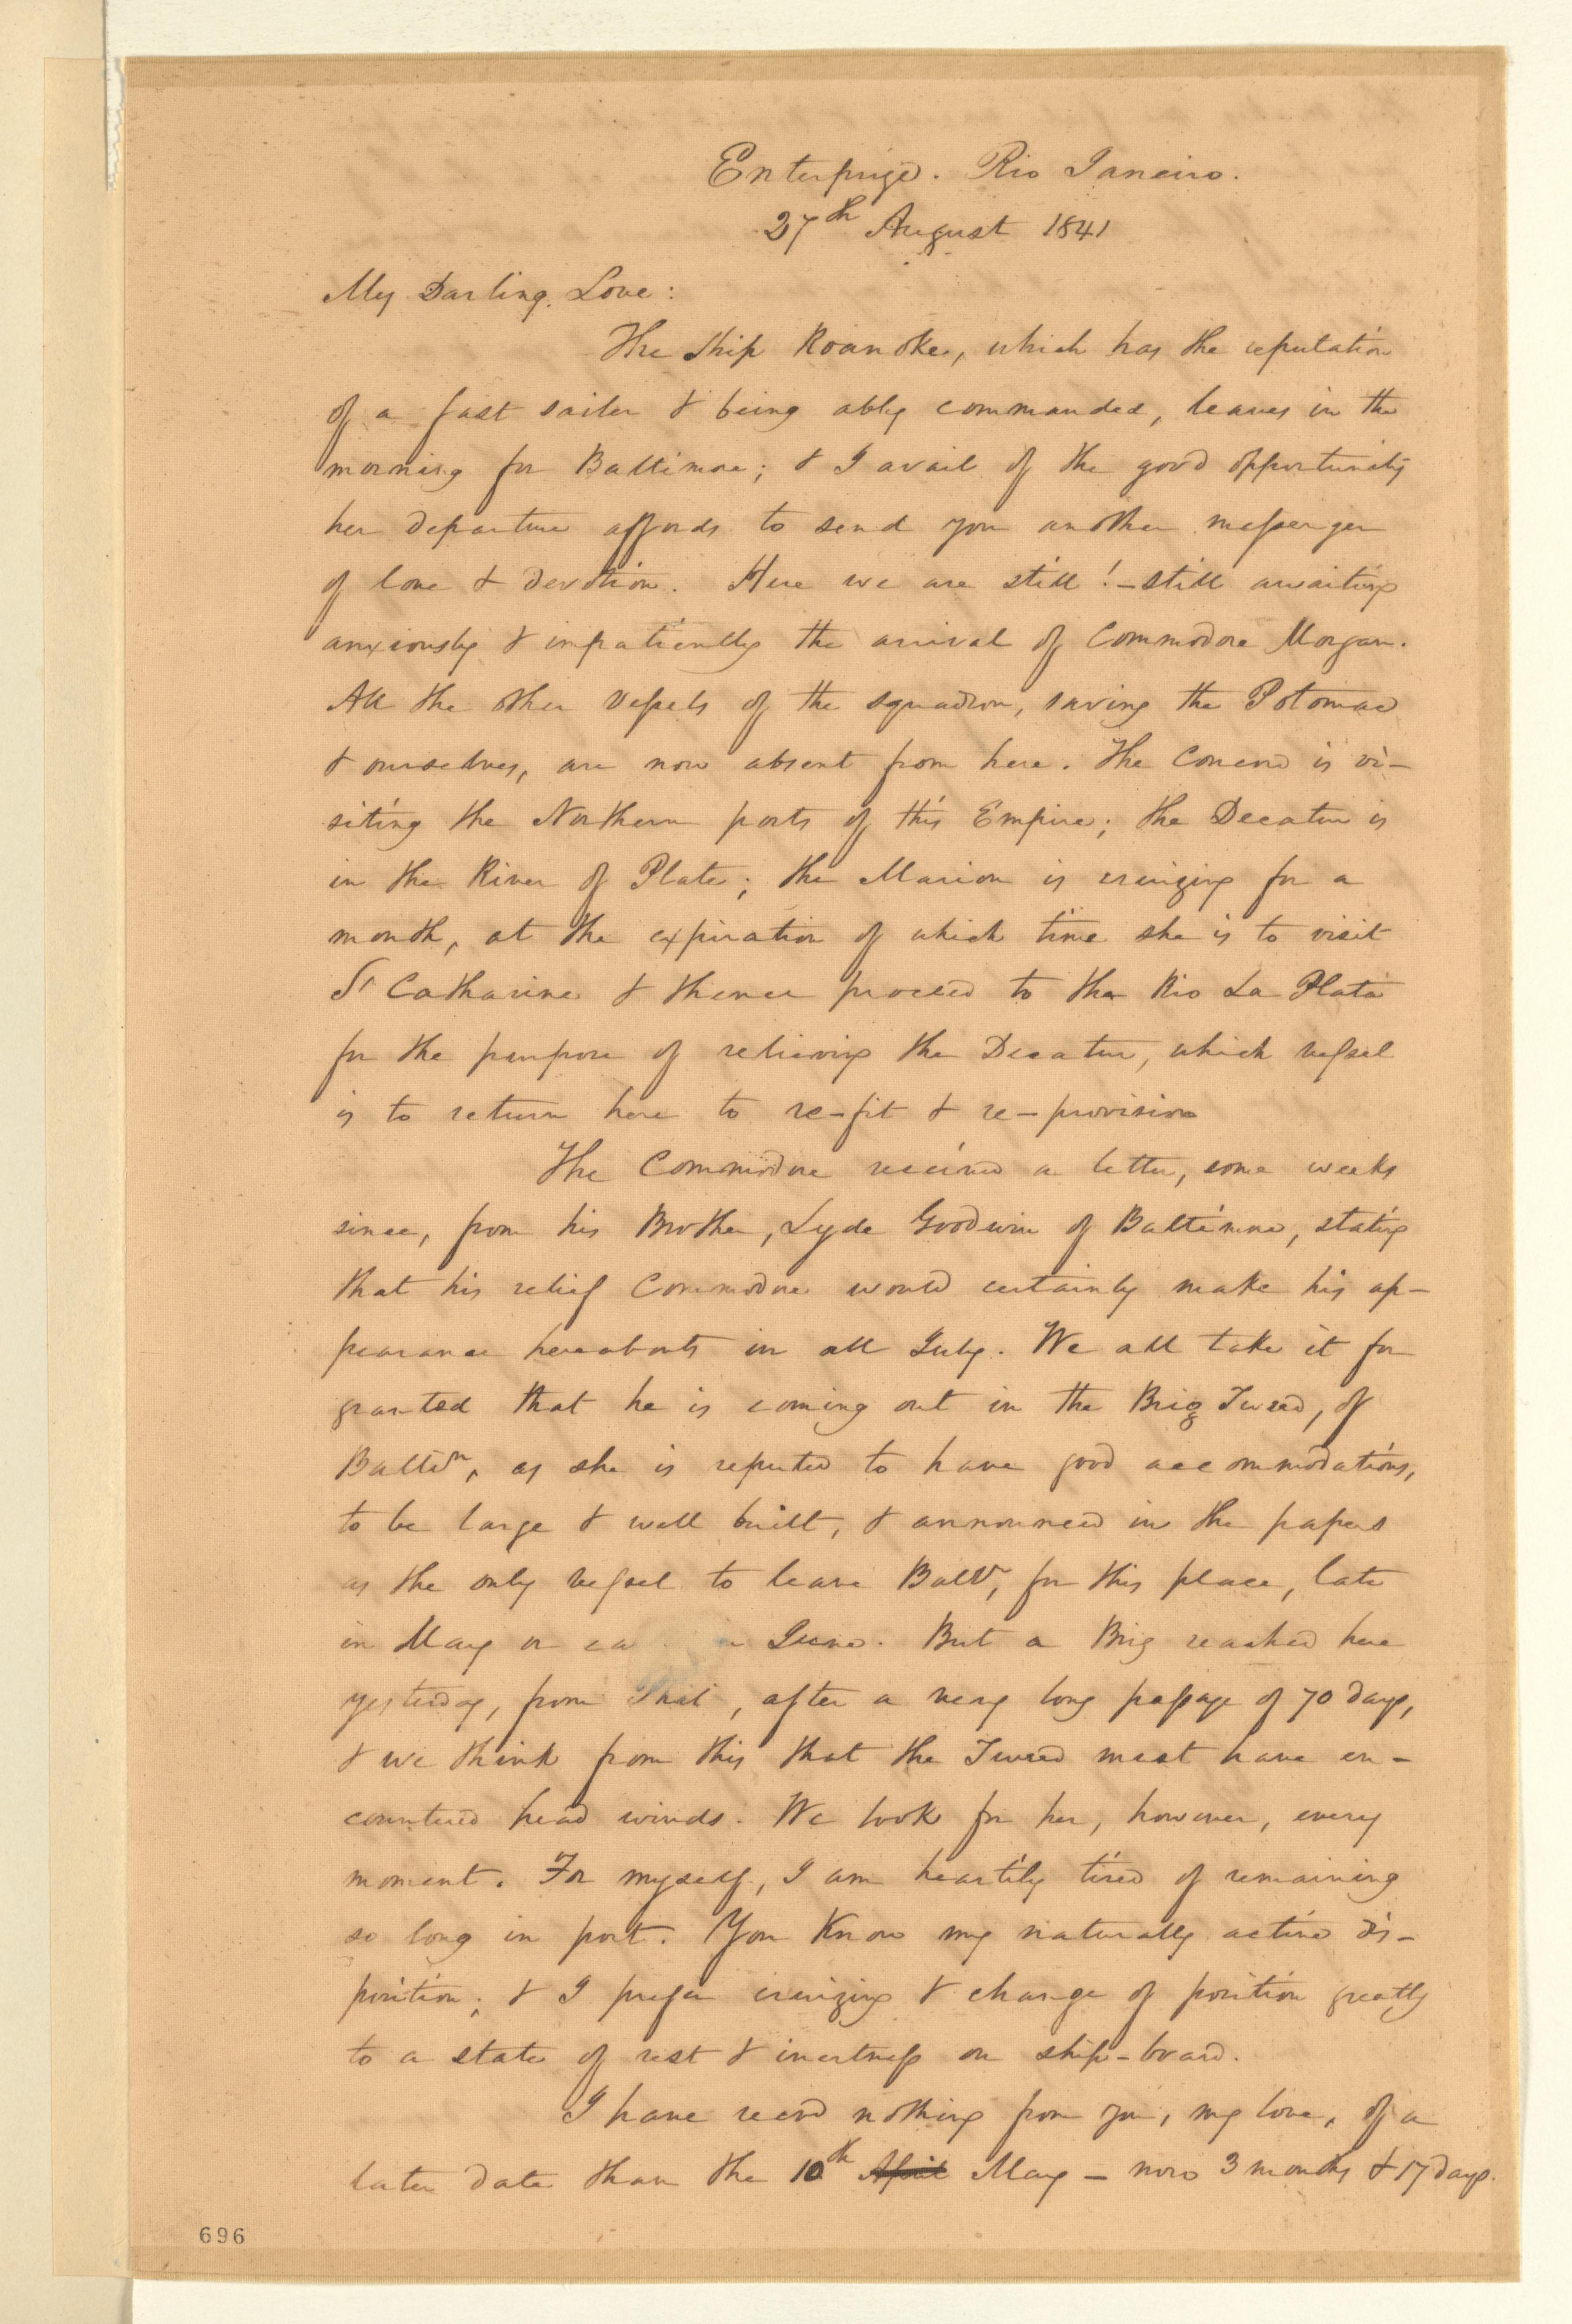 Enterprize. Rio Janeiro.
27th August 1841
My Darling Love:
The ship Roanoke, which has the reputation
of a fast sailer & being ably commanded, leaves in the
morning for Baltimore; & I avail of the good opportunity
her departure affords to send you another messenger
of love & devotion. Here we are still! – still awaiting
anxiously & impatiently the arrival of Commodore Morgan.
All the other vessels of the squadron, saving the Potomac
& ourselves, are now absent from here. The Concord is vi-
siting the Northern ports of this Empire; the Decatur is
in the River of Plate; the Marion is cruizing for a
month, at the expiration of which time she is to visit
St Catharine & thence proceed to the Rio La Plata
for the purpose of relieving the Decatur, which vessel
is to return here to re-fit & re-provision
The Commodore received a letter, some weeks
since, from his Brother, Lyde Goodwin of Baltimore, stating
that his relief Commodore would certainly make his ap-
pearance hereabouts in all July. We all take it for
granted that he is coming out in the Brig Tweed, of
Balto, as she is reputed to have good accommodations,
to be large & well built, & announced in the papers
as the only vessel to leave Balto, for this place, late
in May or ea in June. But a Brig reached here
yesterday, from Phil, after a very long passage of 70 days,
& we think from this that the Tweed must have en-
countered head winds. We look for her, however, every
moment. For myself, I am heartily tired of remaining
so long in port. You know my naturally active dis-
position; & I prefer cruizing & change of position greatly
to a state of rest & inertness on ship-board.
I have recd nothing from you, my love, of a
later date than the 10th April May – now 3 months & 17 days.
696